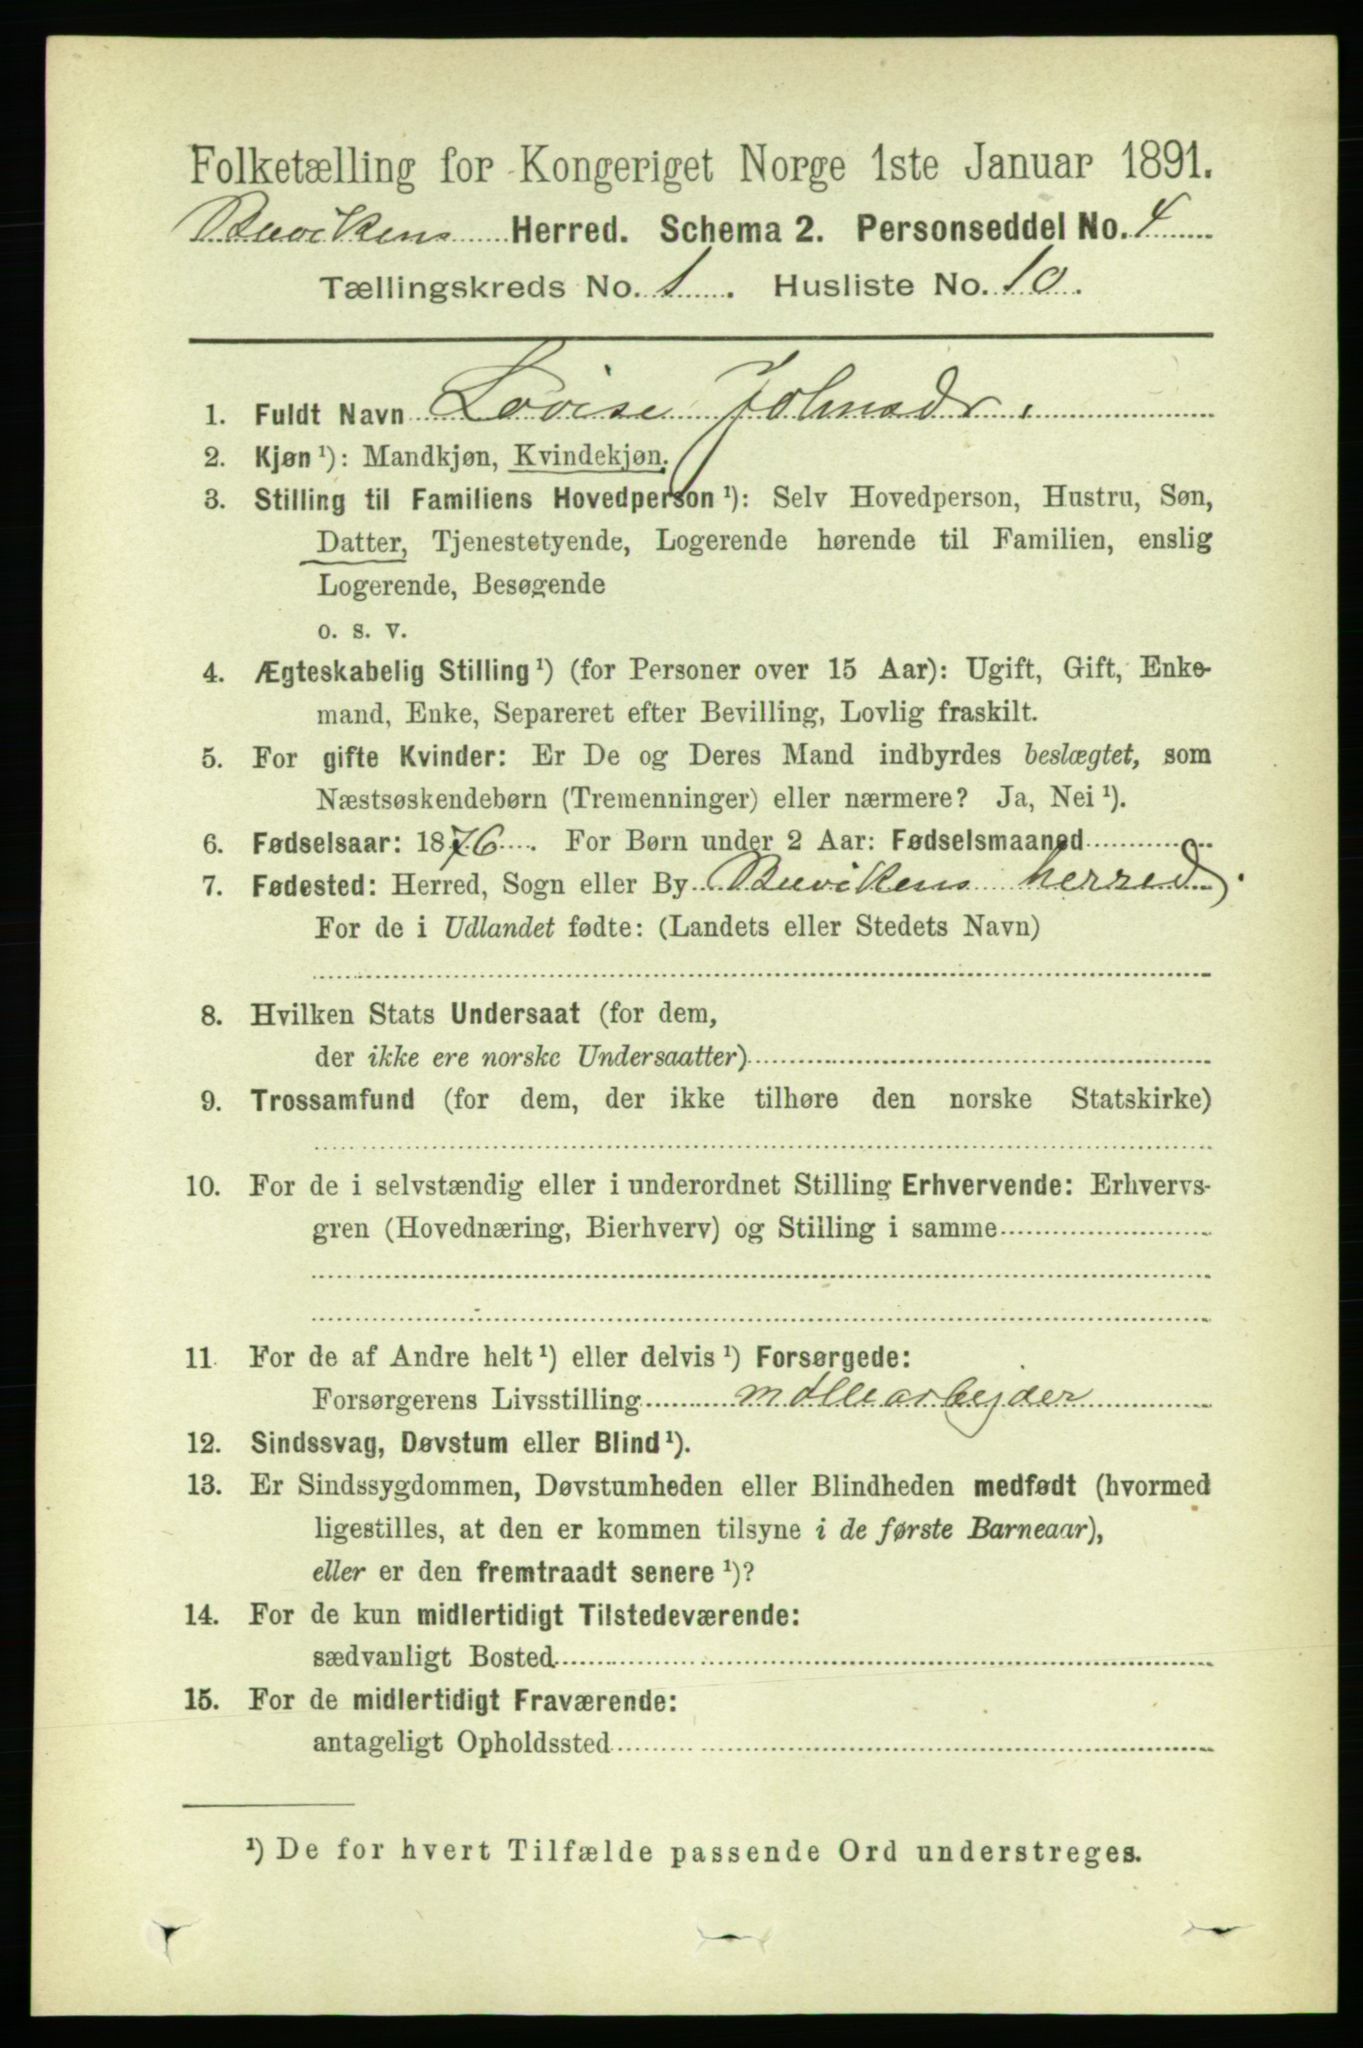 Folketælling for Kongeriget Norge 1ste Januar 1891.
Buvikens Herred. Schema 2. Personseddel No. 4
Tællingskreds No. 1. Husliste No. 10.
1. Fuldt Navn Lovise Johnsdr.
2. Kjøn ¹): Mandkjøn, Kvindekjøn.
3. Stilling til Familiens Hovedperson ¹): Selv Hovedperson, Hustru, Søn,
Datter, Tjenestetyende, Logerende hørende til Familien, enslig
Logerende, Besøgende
o. s. v.
4. Ægteskabelig Stilling ¹) (for Personer over 15 Aar): Ugift, Gift, Enke-
mand, Enke, Separeret efter Bevilling, Lovlig fraskilt.
5. For gifte Kvinder: Er De og Deres Mand indbyrdes beslægtet, som
Næstsøskendebørn (Tremenninger) eller nærmere? Ja, Nei ¹).
6. Fødselsaar: 1876. For Børn under 2 Aar: Fødselsmaaned
7. Fødested: Herred, Sogn eller By Buvikens herred.
For de i Udlandet fødte: (Landets eller Stedets Navn)
8. Hvilken Stats Undersaat (for dem,
der ikke ere norske Undersaatter)
9. Trossamfund (for dem, der ikke tilhøre den norske Statskirke)
10. For de i selvstændig eller i underordnet Stilling Erhvervende: Erhvervs-
gren (Hovednæring, Bierhverv) og Stilling i samme
11. For de af Andre helt ¹) eller delvis ¹) Forsørgede:
Forsørgerens Livsstilling møllearbejder
12. Sindssvag, Døvstum eller Blind ¹).
13. Er Sindssygdommen, Døvstumheden eller Blindheden medfødt (hvormed
ligestilles, at den er kommen tilsyne i de første Barneaar),
eller er den fremtraadt senere ¹)?
14. For de kun midlertidigt Tilstedeværende:
sædvanligt Bosted
15. For de midlertidigt Fraværende:
antageligt Opholdssted
¹) De for hvert Tilfælde passende Ord understreges.